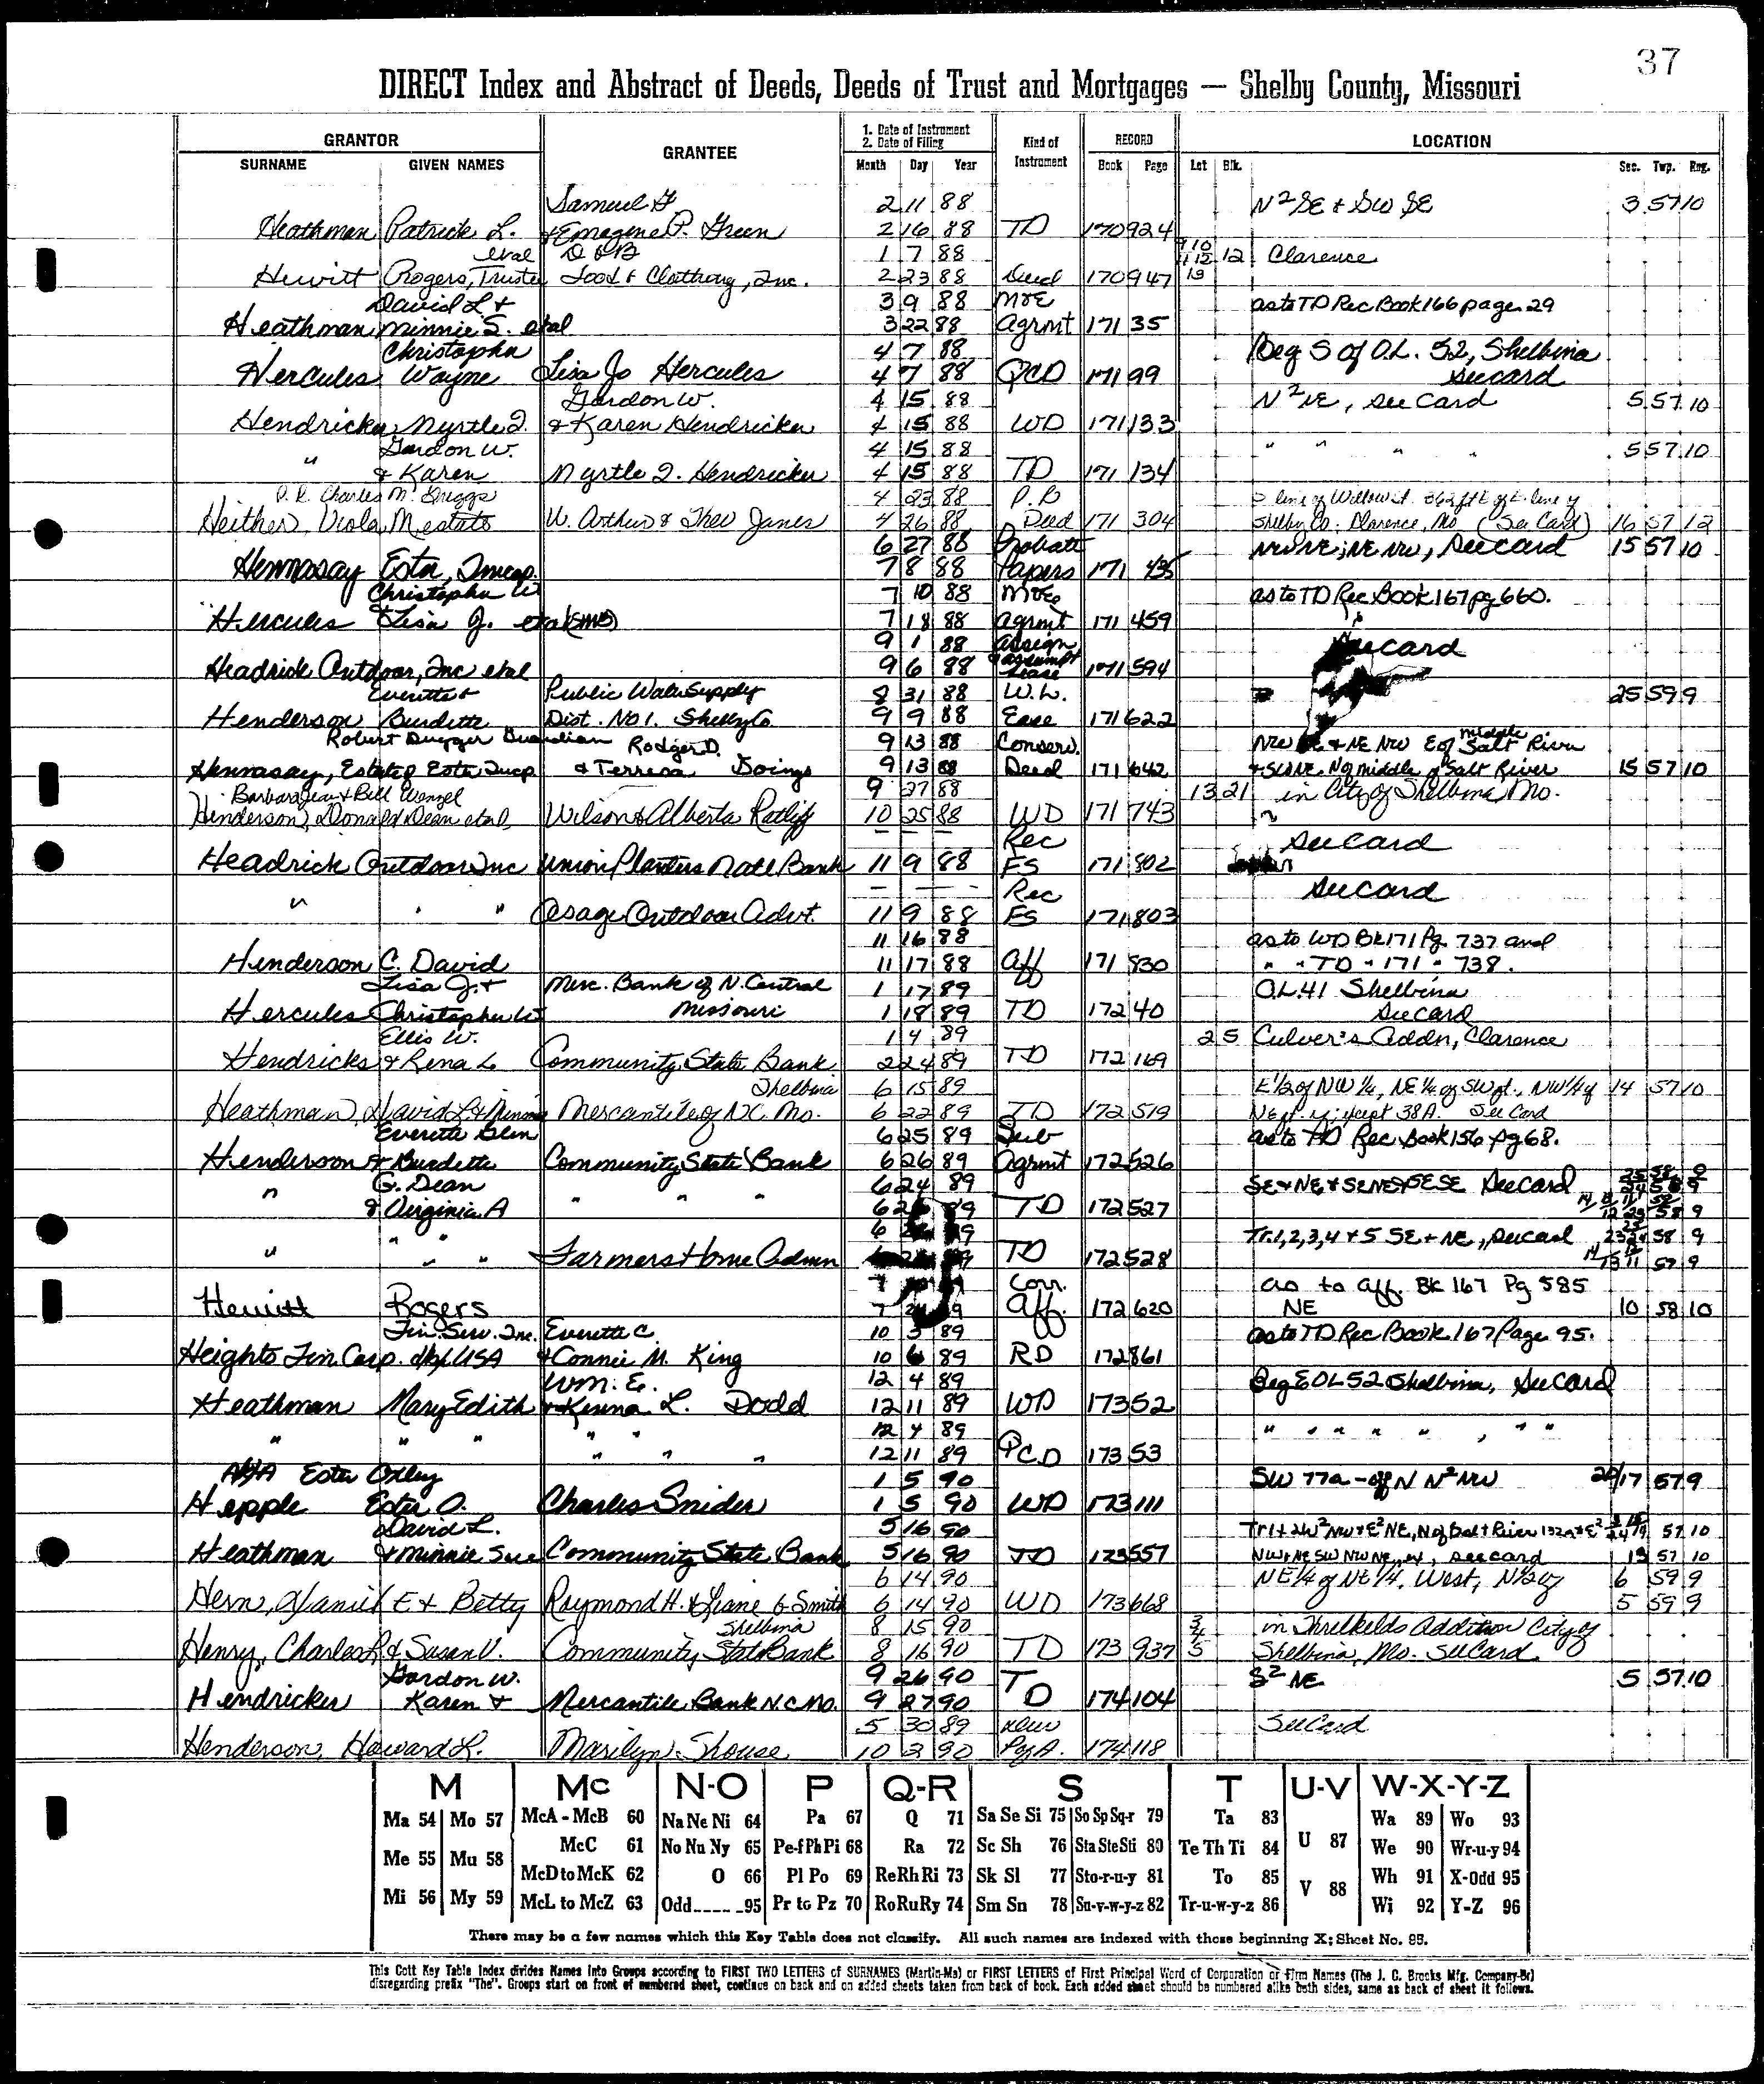 37
DIRECT Index and Abstract of Deeds, Deeds of Trust and Mortgages — Shelby County, Missouri
GRANTOR GRANTEE 1. Date of Instrument 2. Date of Filing Kind of Instrument RECORD LOCATION
SURNAME GIVEN NAMES Month Day Year Book Page Lot Blk. Sec. Twp. Rng.
Samuel F 2 11 88 N2SE + SW SE 3 57 10
Heathman Patrick L. & Emagene P. Green 2 16 88 TD 170 924
etal D & B 1 7 88 9 10 11 12 12 Clarence
Hewitt Rogers, Trustee Food & Clothing, Inc. 2 23 88 Deed 170 947 13
David L + 3 9 88 MOE as to TD Rec Book 166 page 29
Heathman Minnie S. etal 3 22 88 Agrmt 171 35
Christopher 4 7 88 Beg S of O.L. 52, Shelbina
Hercules Wayne Lisa Jo Hercules 4 7 88 QCD 171 99 See card
Gordon W. 4 15 88 N2NE, see Card 5 57 10
Hendricker Myrtle I. & Karen Hendricker 4 15 88 WD 171 133
Gordon W. 4 15 88 " " " " 5 57 10
" & Karen Myrtle I. Hendricker 4 15 88 TD 171 134
P.R. Charles M. Griggs 4 23 88 P.R line of Willow St. 362 ft E of E. line of
Heither, Viola M estate W. Arthur & Theo Janes 4 26 88 Deed 171 304 Shelby Co. Clarence, Mo (See Card) 16 57 12
6 27 88 Probate NWNE; NE NW, See card 15 57 10
Hennasay Esta, Incap. 7 8 88 Papers 171 435
Christopher W 7 10 88 MOE as to TD Rec Book 167 pg 660.
Hercules & Lisa J. etal 7 18 88 Agrmt 171 459
9 1 88 Assign See card
Headrick Outdoor, Inc etal 9 6 88 & assumpt Lease 171 594
Everette + Public Water Supply 8 31 88 W.L. 25 59 9
Henderson Burdette Dist. No 1. Shelby Co. 9 9 88 Ease 171 622
Robert Dugger Guardian Rodger D. 9 13 88 Conserv. NW NE + NE NW E of Middle Salt River
Hennasay, Estate of Esta Incap & Terresa Goings 9 13 88 Deed 171 642 + SWNE N of middle of Salt River 15 57 10
Barbara Jean + Bill Wenzel 9 27 88 13 21 in City of Shelbina Mo.
Henderson, Donald Dean etal, Wilson & Alberta Ratliff 10 25 88 WD 171 743
— — — Rec See card
Headrick Outdoor Inc Union Planters Natl Bank 11 9 88 FS 171 802
— — — Rec See card
" " " Osage Outdoor Advt. 11 9 88 FS 171 803
11 16 88 as to WD Bk 171 Pg. 737 and
Henderson C. David 11 17 88 Aff 171 830 " " TD " 171 " 738.
Lisa J. + Merc. Bank of N. Central 1 17 89 O.L. 41 Shelbina
Hercules Christopher W Missouri 1 18 89 TD 172 40 See card
Ellis W. 1 4 89 2 5 Culver's Addn, Clarence
Hendricks & Rena L Community State Bank 2 24 89 TD 172 169
Shelbina 6 15 89 E½ of NW ¼, NE ¼ of SW qt., NW ¼ of 14 57 10
Heathman, David L + Minnie Mercantile of N.C. Mo. 6 22 89 TD 172 519 NE qt. except 38 A. See Card
Everette Glen 6 25 89 Sub as to TD Rec Book 156 pg 68.
Henderson & Burdette Community State Bank 6 26 89 Agrmt 172 526
" G. Dean 6 24 89 SE + NE + SENE + SESE See card
& Virginia A " " " 6 26 89 TD 172 527
6 89 Tr. 1, 2, 3, 4 + 5 SE + NE, See card 58 9
" " " Farmers Home Admn 89 TD 172 528 57 9
7 Corr. as to Aff. BK 167 Pg 585
Hewitt Rogers 7 89 Aff. 172 620 NE 10 58 10
Fin. Serv. Inc. Everette C. 10 3 89 as to TD Rec Book 167 Page 95.
Heights Fin. Corp. dba USA & Connie M. King 10 6 89 RD 172 861
Wm. E. 12 4 89 Beg E OL 52 Shelbina, See card
Heathman Mary Edith & Kenna L. Dodd 12 11 89 WD 173 52
" " " " " 12 4 89 " " " " " , " " "
" " " 12 11 89 QCD 173 53
AKA Esta Oxley 1 5 90 SW 77a - off N N2NW 20/17 57 9
Hepple Esta O. Charles Snider 1 5 90 WD 173 111
David L. 5 16 90 57 10
Heathman & Minnie Sue Community State Bank 5 16 90 TD 173 557 See card 13 57 10
6 14 90 NE ¼ of NE ¼, West, N½ of 6 59 9
Hern, Daniel E + Betty Raymond H. & Diane G Smith 6 14 90 WD 173 668 5 59 9
Shelbina 8 15 90 3 4 in Threlkelds Addition City of
Henry, Charles R & Susan V. Community State Bank 8 16 90 TD 173 937 5 Shelbina, Mo. See Card.
Gordon W. 9 26 90 T S2 NE 5 57 10
Hendricker Karen + Mercantile Bank N.C. Mo. 9 27 90 D 174 104
5 30 89 See Card
Henderson, Howard L. Marilyn Shouse 10 2 90 P of A. 174 118
M Mc N-O P Q-R S T U-V W-X-Y-Z
Ma 54 Mo 57 McA - McB 60 Na Ne Ni 64 Pa 67 Q 71 Sa Se Si 75 So Sp Sq-r 79 Ta 83 U 87 Wa 89 Wo 93
Me 55 Mu 58 McC 61 No Nu Ny 65 Pe-f Ph Pi 68 Ra 72 Sc Sh 76 Sta Ste Sti 80 Te Th Ti 84 V 88 We 90 Wr-u-y 94
Mi 56 My 59 McD to McK 62 O 66 Pl Po 69 Re Rh Ri 73 Sk Sl 77 Sto-r-u-y 81 To 85 Wh 91 X-Odd 95
McL to McZ 63 Odd_____95 Pr to Pz 70 Ro Ru Ry 74 Sm Sn 78 Su-v-w-y-z 82 Tr-u-w-y-z 86 Wi 92 Y-Z 96
There may be a few names which this Key Table does not classify. All such names are indexed with those beginning X; Sheet No. 95.
This Cott Key Table Index divides Names into Groups according to FIRST TWO LETTERS of SURNAMES (Martin-Ma) or FIRST LETTERS of First Principal Word of Corporation or Firm Names (The J. C. Brooks Mfg. Company-Br)
disregarding prefix "The". Groups start on front of numbered sheet, continue on back and on added sheets taken from back of book. Each added sheet should be numbered alike both sides, same as back of sheet it follows.